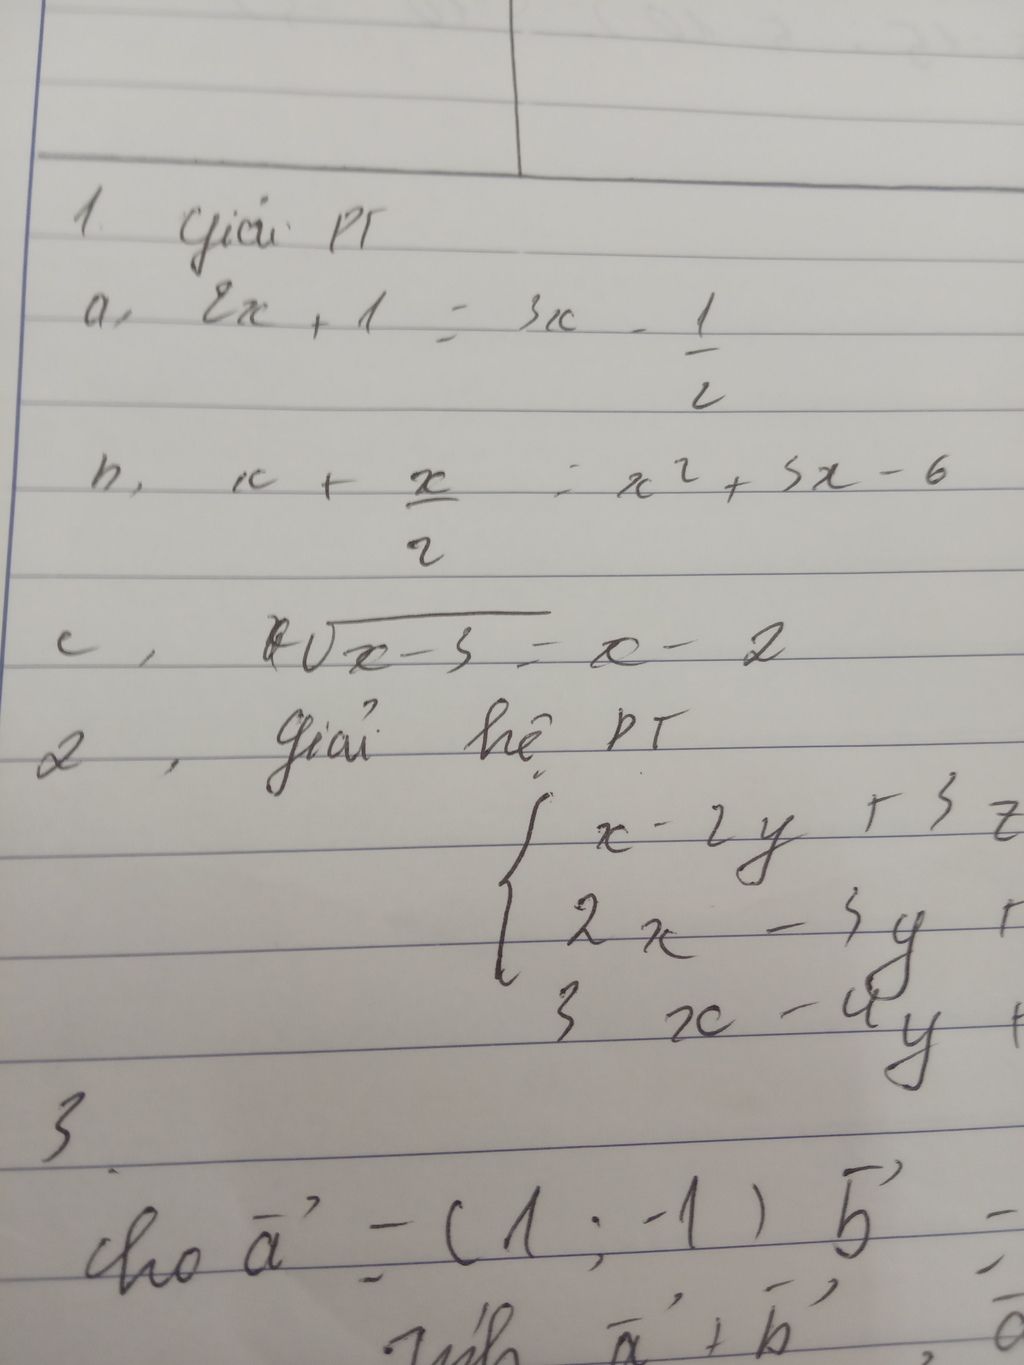 1. Giải PT
a, 2x + 1 = 3x - 1/2
b, x + x/2 = x² + 3x - 6
c, √x-3 = x - 2
2, Giải hệ PT
{ x - 2y + 3z
2x - 3y +
3x - 4y +
3.
cho a⃗ = (1; -1) b⃗ =
Tính a⃗ + b⃗,